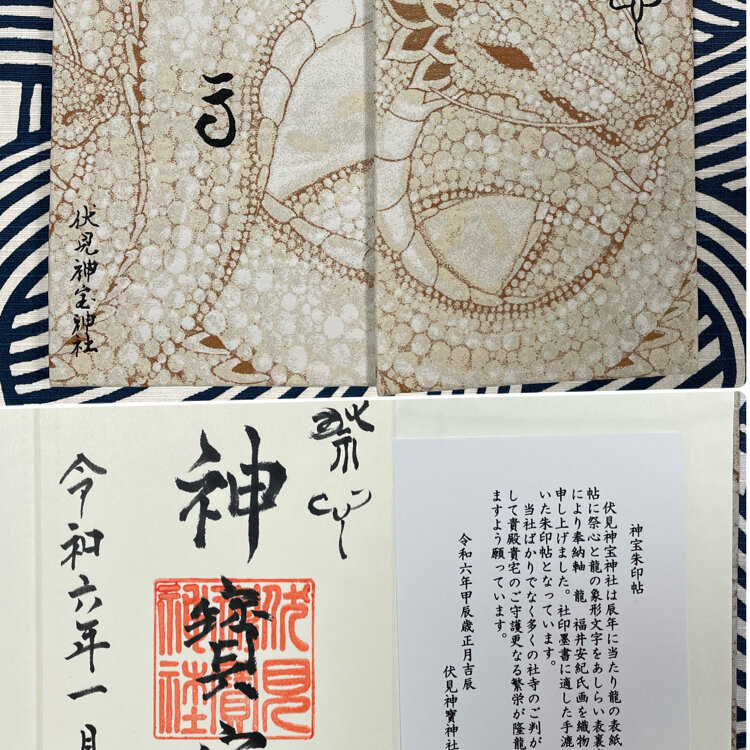 伏見神宝神社
神寳
令和六年一月
伏見
神寳
神社
神宝朱印帖
伏見神宝神社は辰年に当たり龍の表紙
帖に祭心と龍の象形文字をあしらい表裏
により奉納軸 龍 福井安紀氏画を織物
申し上げました。社印墨書に適した手漉
いた朱印帖となっています。
当社ばかりでなく多くの社寺のご判が
して貴殿貴宅のご守護更なる繁栄が隆龍
ますよう願っています。
令和六年甲辰歳正月吉辰
伏見神寳神社